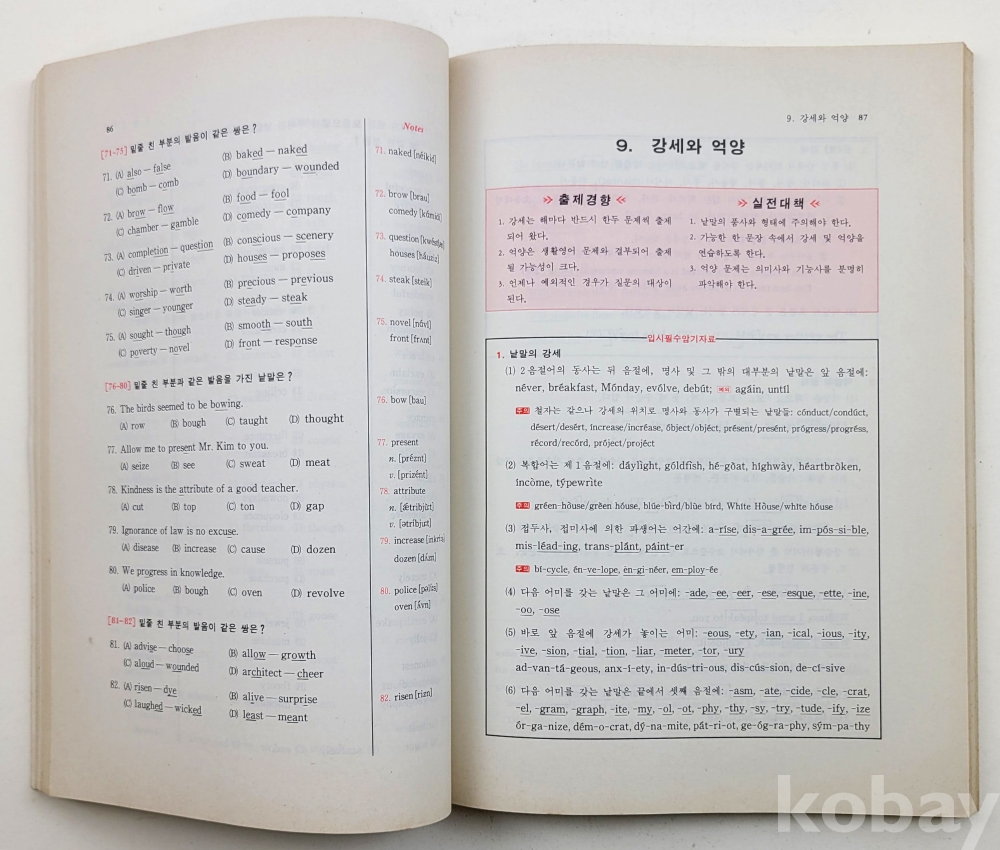 86
[71-75] 밑줄 친 부분의 발음이 같은 쌍은?
71. (A) also — false (B) baked — naked
(C) bomb — comb (D) boundary — wounded
72. (A) brow — flow (B) food — fool
(C) chamber — gamble (D) comedy — company
73. (A) completion — question (B) conscious — scenery
(C) driven — private (D) houses — proposes
74. (A) worship — worth (B) precious — previous
(C) singer — younger (D) steady — steak
75. (A) sought — though (B) smooth — south
(C) poverty — novel (D) front — response
[76-80] 밑줄 친 부분과 같은 발음을 가진 낱말은?
76. The birds seemed to be bowing.
(A) row (B) bough (C) taught (D) thought
77. Allow me to present Mr. Kim to you.
(A) seize (B) see (C) sweat (D) meat
78. Kindness is the attribute of a good teacher.
(A) cut (B) top (C) ton (D) gap
79. Ignorance of law is no excuse.
(A) disease (B) increase (C) cause (D) dozen
80. We progress in knowledge.
(A) police (B) bough (C) oven (D) revolve
[81-82] 밑줄 친 부분의 발음이 같은 쌍은?
81. (A) advise — choose (B) allow — growth
(C) aloud — wounded (D) architect — cheer
82. (A) risen — dye (B) alive — surprise
(C) laughed — wicked (D) least — meant
Notes
71. naked [néikid]
72. brow [brau]
comedy [kɑ́midi]
73. question
houses [háuziz]
74. steak [steik]
75. novel [nɑ́vl]
front [frʌnt]
76. bow [bau]
77. present
n. [préznt]
v. [prizént]
78. attribute
n. [ǽtribjùt]
v. [ətríbjut]
79. increase
dozen [dʌ́zn]
80. police [pəlíːs]
oven [ʌ́vn]
82. risen [rizn]
9. 강세와 억양 87
9. 강세와 억양
≫ 출제경향 ≪
1. 강세는 해마다 반드시 한두 문제씩 출제
되어 왔다.
2. 억양은 생활영어 문제와 결부되어 출제
될 가능성이 크다.
3. 언제나 예외적인 경우가 질문의 대상이
된다.
≫ 실전대책 ≪
1. 낱말의 품사와 형태에 주의해야 한다.
2. 가능한 한 문장 속에서 강세 및 억양을
연습하도록 한다.
3. 억양 문제는 의미사와 기능사를 분명히
파악해야 한다.
입시필수암기자료
1. 낱말의 강세
(1) 2음절어의 동사는 뒤 음절에, 명사 및 그 밖의 대부분의 낱말은 앞 음절에:
néver, bréakfast, Mónday, evólve, debút; 예외 agáin, untíl
주의 철자는 같으나 강세의 위치로 명사와 동사가 구별되는 낱말들: cónduct/condúct,
désert/desért, íncrease/incréase, óbject/objéct, présent/presént, prógress/progréss,
récord/recórd, próject/projéct
(2) 복합어는 제 1 음절에: dáylìght, góldfìsh, hé-gòat, híghwày, héartbròken,
íncòme, týpewrìte
주의 gréen-hòuse/grèen hóuse, blúe-bìrd/blùe bírd, Whíte Hòuse/whìte hóuse
(3) 접두사, 접미사에 의한 파생어는 어간에: a-ríse, dis-a-grée, im-pós-si-ble,
mis-léad-ing, trans-plánt, páint-er
주의 bí-cycle, én-ve-lope, en-gi-néer, em-ploy-ée
(4) 다음 어미를 갖는 낱말은 그 어미에: -ade, -ee, -eer, -ese, -esque, -ette, -ine,
-oo, -ose
(5) 바로 앞 음절에 강세가 놓이는 어미: -eous, -ety, -ian, -ical, -ious, -ity,
-ive, -sion, -tial, -tion, -liar, -meter, -tor, -ury
ad-van-tá-geous, anx-í-ety, in-dús-tri-ous, dis-cús-sion, de-cí-sive
(6) 다음 어미를 갖는 낱말은 끝에서 셋째 음절에: -asm, -ate, -cide, -cle, -crat,
-el, -gram, -graph, -ite, -my, -ol, -ot, -phy, -thy, -sy, -try, -tude, -ify, -ize
ór-ga-nize, dém-o-crat, dý-na-mite, pát-ri-ot, ge-óg-ra-phy, sým-pa-thy
kobay